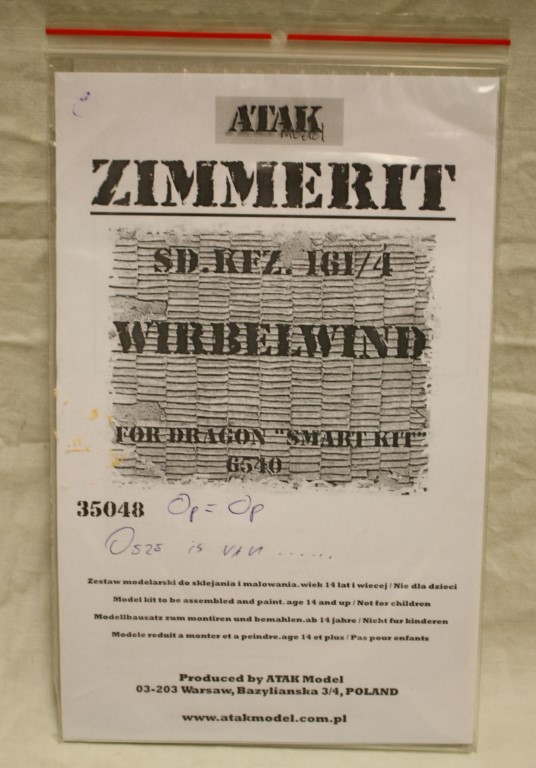 ATAK
model
ZIMMERIT
SD.KFZ. 161/4
WIRBELWIND
FOR DRAGON "SMART KIT"
6540
35048 Op = Op
is van ......
Zestaw modelarski do sklejania i malowania. wiek 14 lat i wiecej / Nie dla dzieci
Model kit to be assembled and paint. age 14 and up / Not for children
Modellbausatz zum montiren und bemahlen. ab 14 jahre / Nicht fur kinderen
Modele reduit a monter et a peindre. age 14 et plus / Pas pour enfants
Produced by ATAK Model
03-203 Warsaw, Bazylianska 3/4, POLAND
www.atakmodel.com.pl